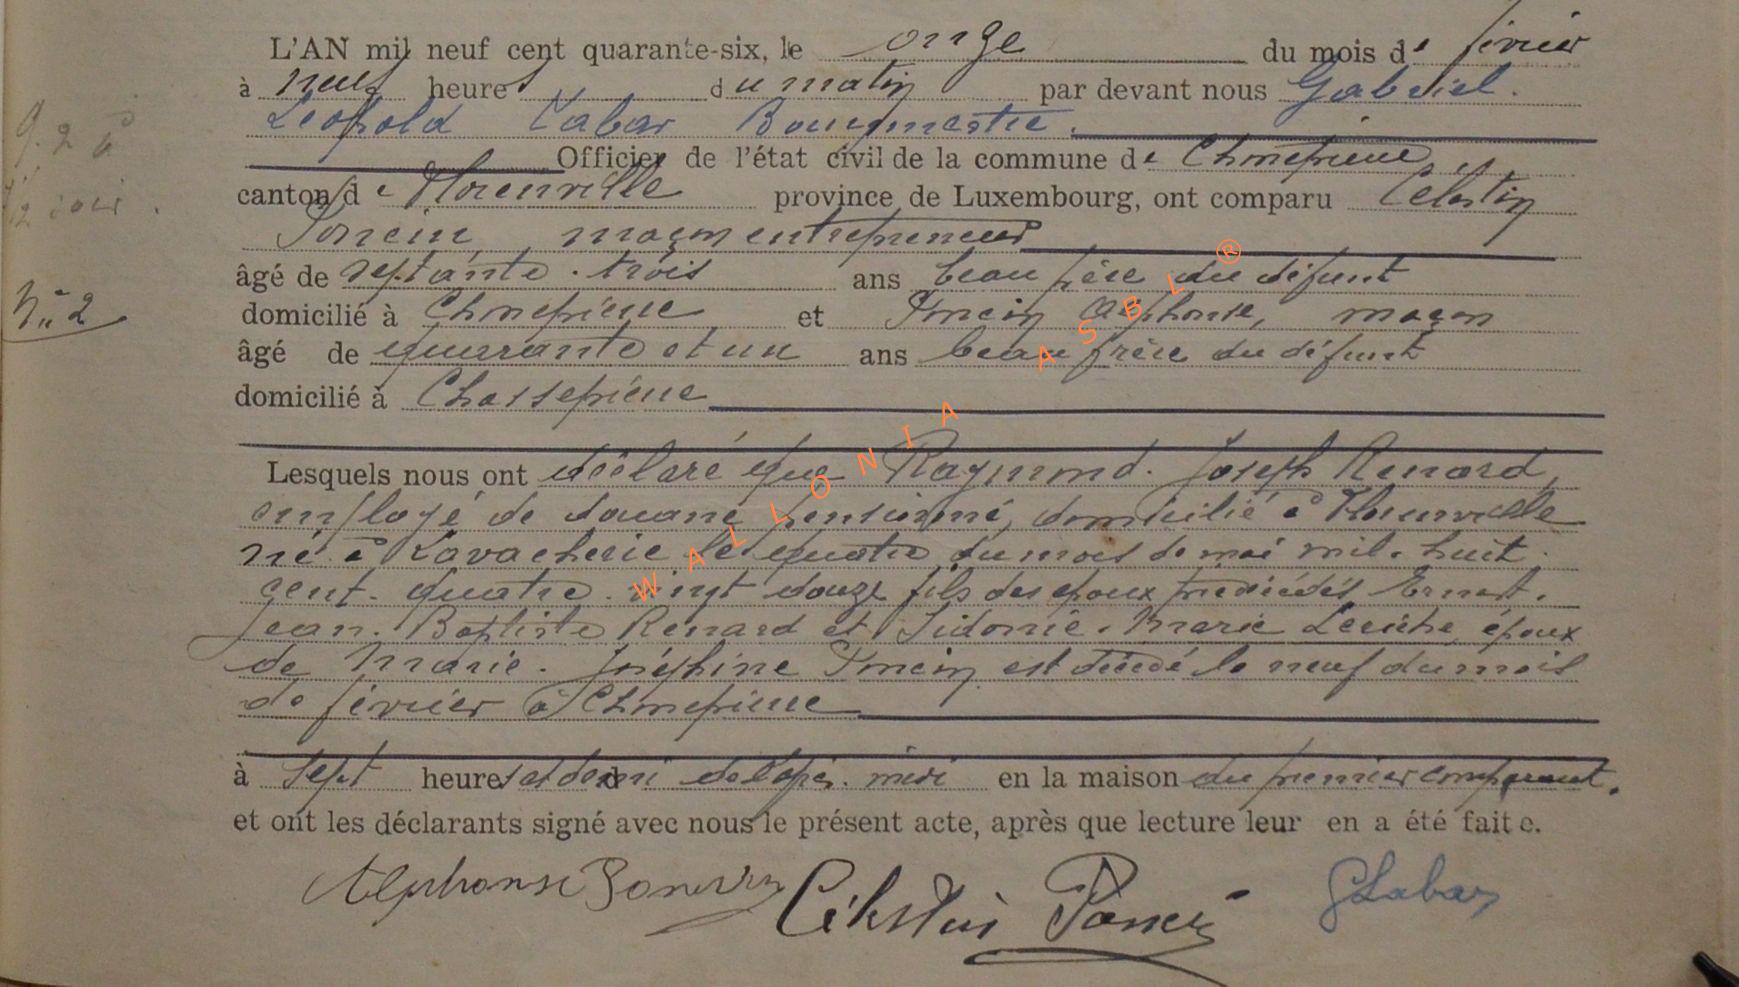 L'AN mil neuf cent quarante-six, le onze du mois de février
à neuf heures du matin par devant nous Gabriel.
Léopold Labar Bourgmestre.
Officier de l'état civil de la commune de Chassepierre
canton de Florenville province de Luxembourg, ont comparu Célestin
Poncin, maçon entrepreneur
âgé de septante-trois ans beau frère du défunt
domicilié à Chassepierre et Poncin Alphonse, maçon
âgé de quarante et un ans beau frère du défunt
domicilié à Chassepierre
N° 2
Lesquels nous ont déclaré que Raymond. Joseph Renard,
employé de douane pensionné, domicilié à Florenville
né à Lavacherie le quatre du mois de mai mil. huit.
cent. quatre. vingt douze fils des époux prédécédés Ernest.
Jean. Baptiste Renard et Sidonie. Marie Leriche, époux
de Marie. Joséphine Poncin est décédé le neuf du mois
de février à Chassepierre
à sept heures et demi de l'après. midi en la maison du premier comparant.
et ont les déclarants signé avec nous le présent acte, après que lecture leur en a été faite.
Alphonse Poncin Célestin Poncin GLabar
WALLONIA ASBL ®